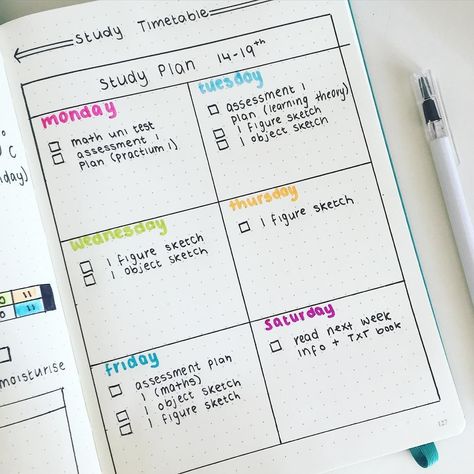 Study Timetable
Study Plan 14-19th
monday
math uni test
assessment 1
plan (practium 1)
tuesday
assessment 1
plan (learning theory)
1 figure sketch
1 object sketch
wednesday
1 figure sketch
1 object sketch
thursday
1 figure sketch
friday
assessment plan
1 (maths)
1 object sketch
1 figure sketch
saturday
read next week
info + TXT book
day)
11
11
moisturise
127